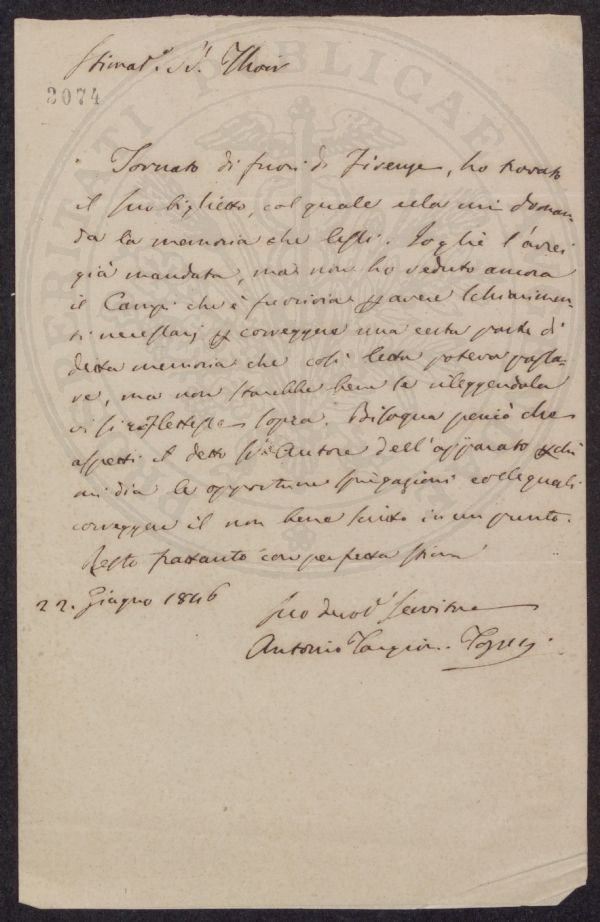 Stimat.º Sr. Thouar
2074
Tornato di fuori di Firenze, ho trovato
il suo biglietto, col quale ella mi doman-
da la memoria che lessi. Gogliè l'avrei
già mandata, ma non ho veduto ancora
il Campi che è fuorivia per avere schiarimen-
ti necessarj per correggere una certa parte di
detta memoria che così letta poteva passa-
re, ma non starebbe bene se rileggendola
vi si riflettesse sopra. Bisogna perciò che
aspetti il detto Sr. Autore dell'apparato perchè
mi dia le opportune spiegazioni colle quali
correggere il non bene scritto in un punto.
Resto frattanto con perfetta stima
22. Giugno 1846
Suo devot.º Servitore
Antonio Targioni Tozzetti
PUBLICAE